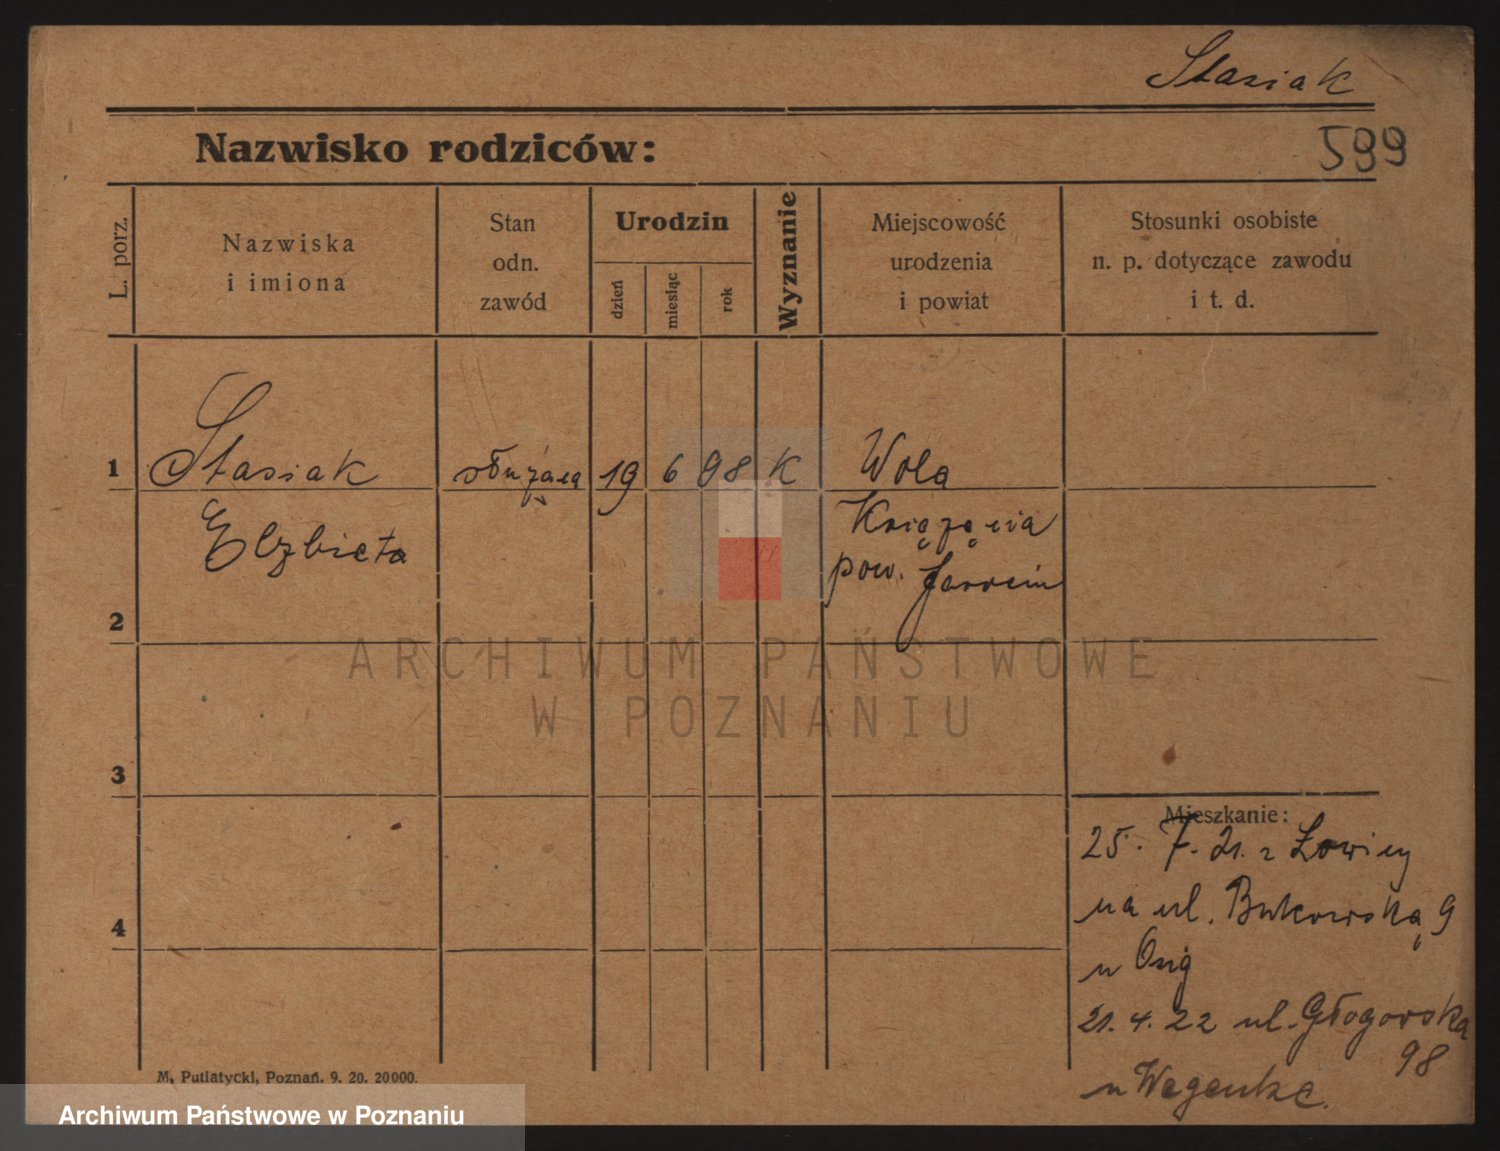 Stasiak
Nazwisko rodziców:
599
L. porz.
Nazwiska
i imiona
Stan
odn.
zawód
Urodzin
dzień
miesiąc
rok
Wyznanie
Miejscowość
urodzenia
i powiat
Stosunki osobiste
n. p. dotyczące zawodu
i t. d.
1
Stasiak służąca 19 6 98 K Wola
Elzbieta
Książęcia
pow. Jarocin
2
3
4
Mieszkanie:
25. 7. 21. z
na ul. Bukowską 9
u
21. 4. 22 ul. Głogowska
98
u
M. Putiatycki, Poznań. 9. 20. 20000.
ARCHIWUM PAŃSTWOWE
W POZNANIU
Archiwum Państwowe w Poznaniu